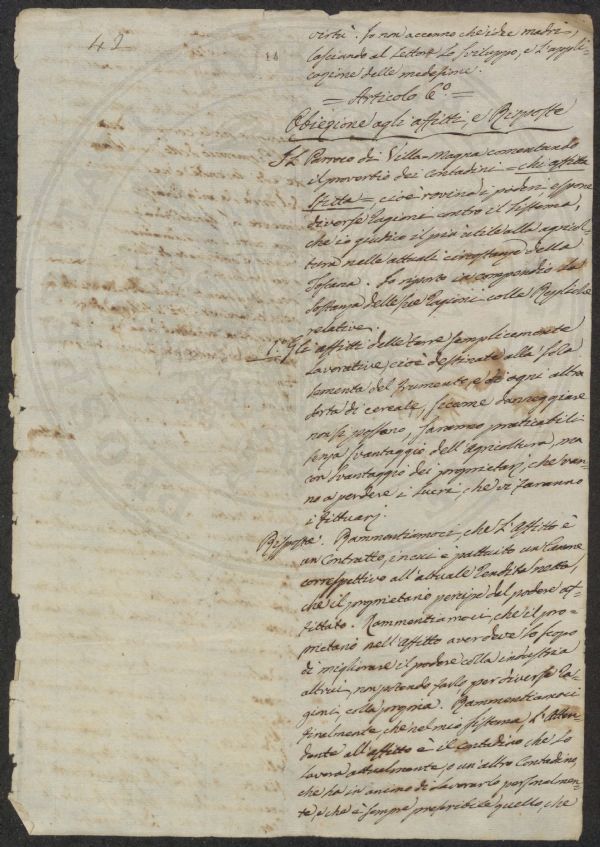 42
virtù. Io non accenno che idee madri,
lasciando al Lettore lo sviluppo, e l'appli-
cazione delle medesime.
= Articolo 6.° =
Obiezione agli affitti, e Risposte
Il Parroco di Villa-Magna comentando
il proverbio dei Contadini = chi affitta
sfitta =, cioè rovina i poderi espone
diverse ragioni contro il sistema,
che io giudico il più utile alla agricol-
tura nelle attuali circostanze della
Tosana. Io riporto in compendio la
sostanza delle sue ragioni colle Repliche
relative.
I. Gli affitti delle terre semplicemente
lavorative, cioè destinate alla sola
sementa del frumento, e di ogni altra
sorta di cereale, siccome danneggiare
non si possano, saranno praticabili
senza svantaggio dell'agricoltura, ma
con svantaggio dei proprietarj, che van-
no a perdere i lucri, che vi faranno
i fittuarj.
Risposta. Rammentiamoci, che l'affitto è
un Contratto, in cui è pattuito un Canone
correspettivo all'attuale rendita netta,
che il proprietario percipe del podere af-
fittato. Rammentiamoci, che il pro-
prietario nell'affitto aver deve lo scopo
di migliorare il podere colla industria
altrui, non potendo farlo, per diverse ra-
gioni colla propria. Rammentiamoci
finalmente, che nel mio sistema l'atten-
dente all'affitto è il contadino, che lo
lavora attualmente, o un'altro Contadino,
che ha in animo di lavorarlo personalmen-
te, e che è sempre preferibile quello, che